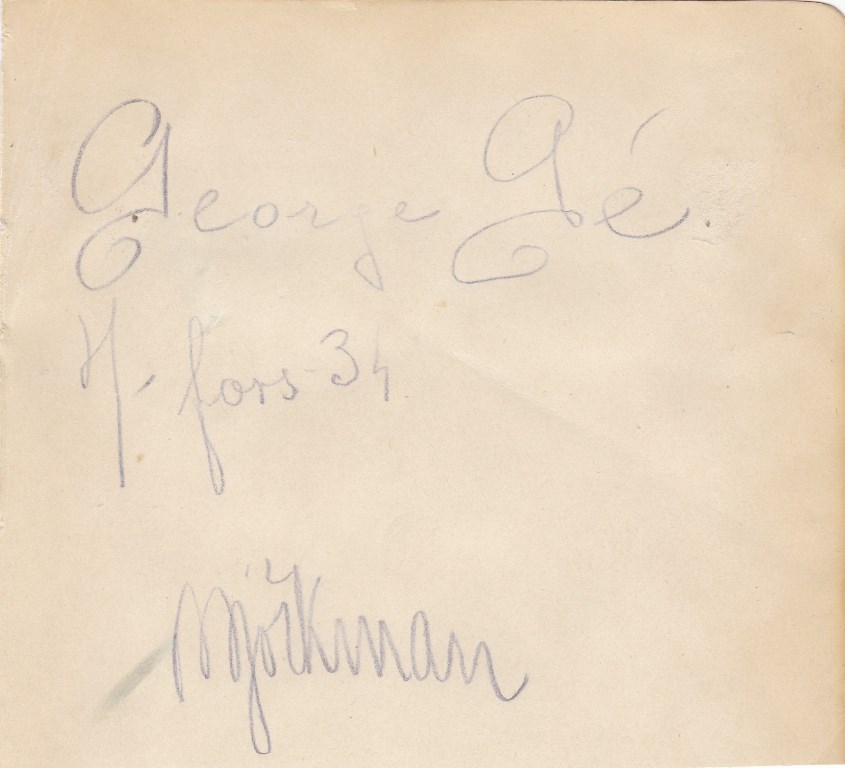 George Gé.
H-fors-34
Björkman